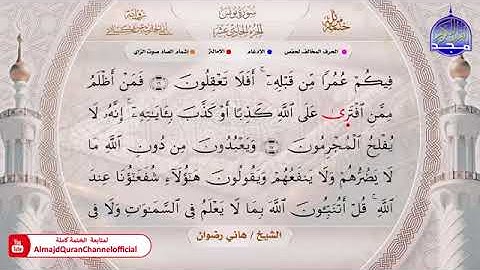 سورة يونس
الجزء الحادي عشر
الحرف المخالف لحفص
الإدغام
الامالة
إشمام الصاد صوت الزاي
فِيكُمْ عُمُرًا مِّن قَبْلِهِۦٓ ۚ أَفَلَا تَعْقِلُونَ فَمَنْ أَظْلَمُ
مِمَّنِ ٱفْتَرَىٰ عَلَى ٱللَّهِ كَذِبًا أَوْ كَذَّبَ بِـَٔايَـٰتِهِۦٓ ۚ إِنَّهُۥ لَا
يُفْلِحُ ٱلْمُجْرِمُونَ وَيَعْبُدُونَ مِن دُونِ ٱللَّهِ مَا
لَا يَضُرُّهُمْ وَلَا يَنفَعُهُمْ وَيَقُولُونَ هَـٰٓؤُلَآءِ شُفَعَـٰٓؤُنَا عِندَ
ٱللَّهِ ۚ قُلْ أَتُنَبِّـُٔونَ ٱللَّهَ بِمَا لَا يَعْلَمُ فِى ٱلسَّمَـٰوَٰتِ وَلَا فِى
الشيخ / هاني رضوان
لمتابعة الختمة كاملة
AlmajdQuranChannelofficial
YouTube